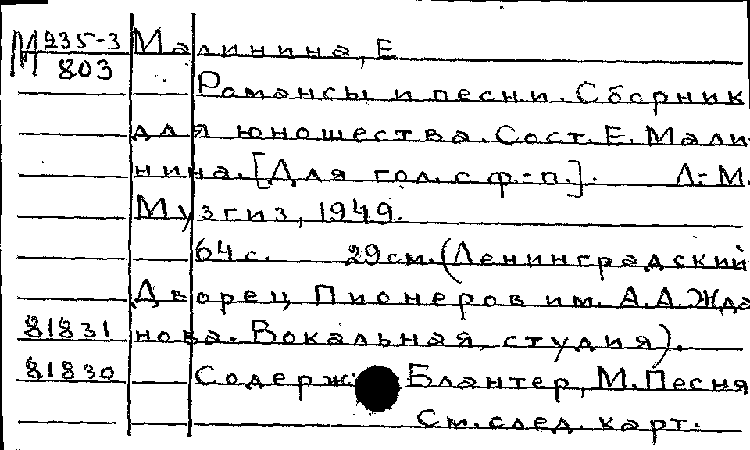 М 935-3 Малинина, Е
803
Романсы и песни. Сборник
для юношества. Сост. Е. Мали-
нина. [Для гол. с ф.-п.]. Л.-М.
Музгиз, 1949.
64 с. 29 см. (Ленинградский
Дворец Пионеров им. А. А Жда
81831 нова. Вокальная студия).
81830 Содерж: Блантер, М. Песня
См. след. карт.